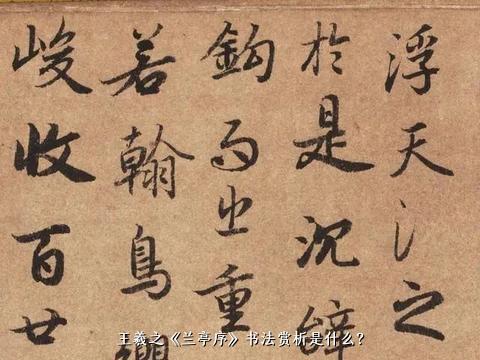 浮天之
於是沉辭
鉤而出重
若翰鳥纓
峻收百
王羲之《兰亭序》书法赏析是什么?